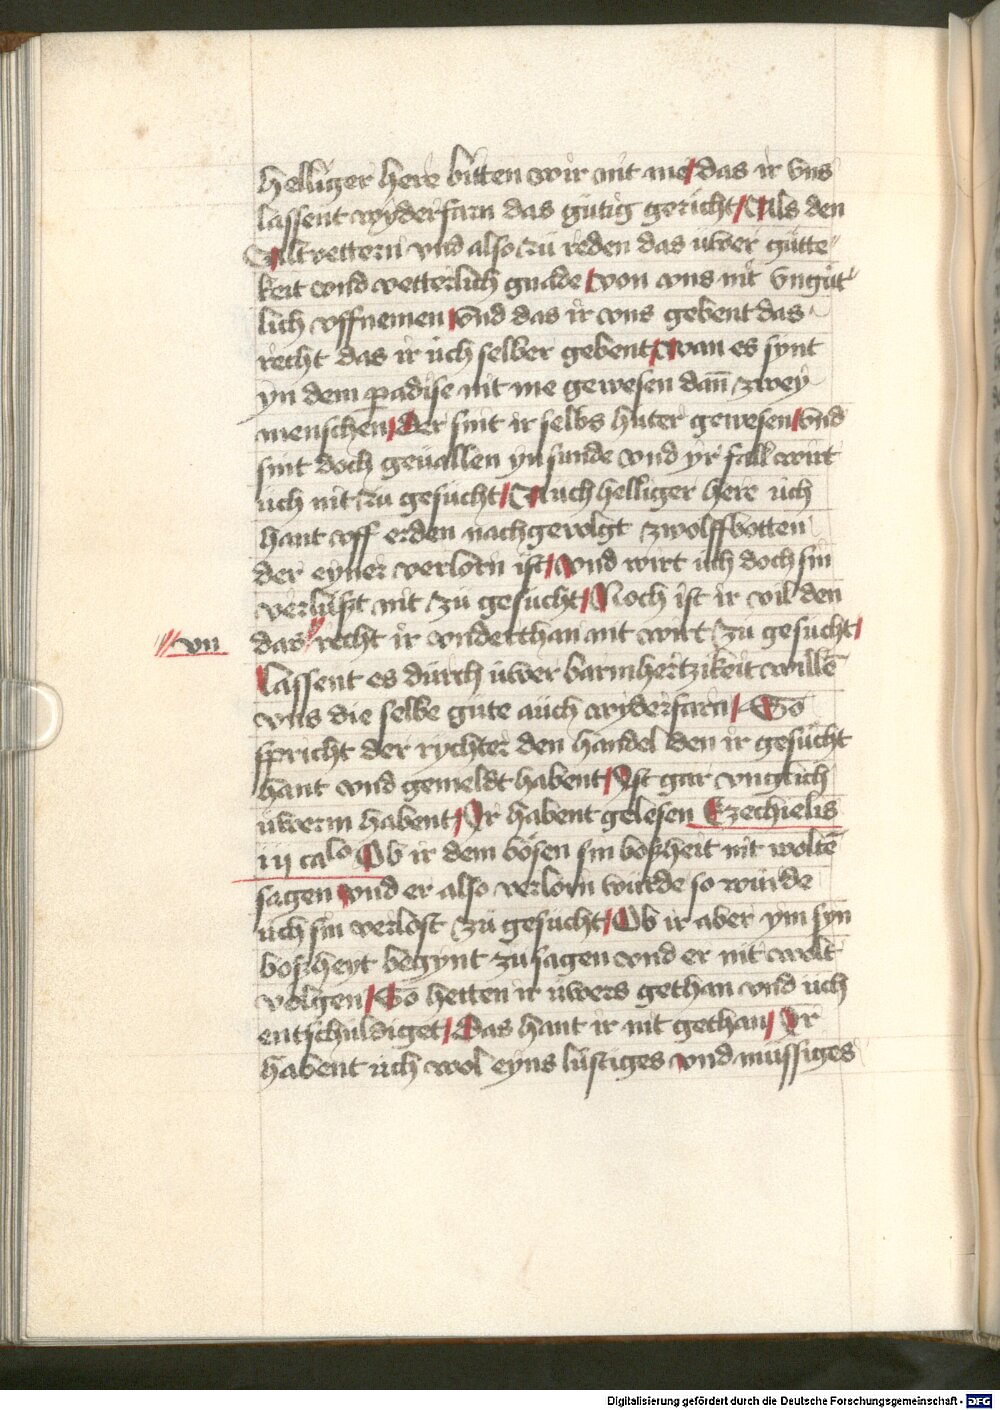 helliger here bitten wir nit me / das ir vns
lassent wyderfarn das gütig gericht / Als den
Altvettern vnd also zü reden das üwer gütte⸗
keit vnd vetterlich gnade / von vns nit vngüt⸗
lich vffnemen / vnd das ir vns gebent das
recht das ir üch selber gebent / wan es synt
yn dem padise nit me gewesen dañ zwey
menschen / Der sint ir selbs hüter gewesen / vnd
sint doch geuallen yn sunde vnd yr fall wirt
üch nit zu gesücht / Auch helliger here üch
hant vff erden nachgevolgt zwolffbotten
der eyner verlorn ist / vnd wirt üch doch sin
verlüßt nit zü gesücht / Noch ist ir vil den
// vn das // recht ir vnderthan nit wirt zu gesücht /
lassent es dürch üwer barmhertzikeit willē
vns die selbe güte aüch wyderfarn / So
spricht der rychter den handel den ir gesücht
hant vnd gemeldt habent / Ist gar vnglich
üwerm habent / Ir habent gelesen Ezechielis
iij calo Ob ir dem bösen sin boßheit nit woltē
sagen vnd er also verlorn würde so würde
üch sin verlost zü gesücht / Ob ir aber ym syn
boßheyt begynt zü sagen vnd er nit wolt
volgen / So hetten ir üwers gethan vnd üch
entschuldiget / Das hant ir nit gethan / Ir
habent üch wol eyns lüstiges vnd müssiges
Digitalisierung gefördert durch die Deutsche Forschungsgemeinschaft - DFG